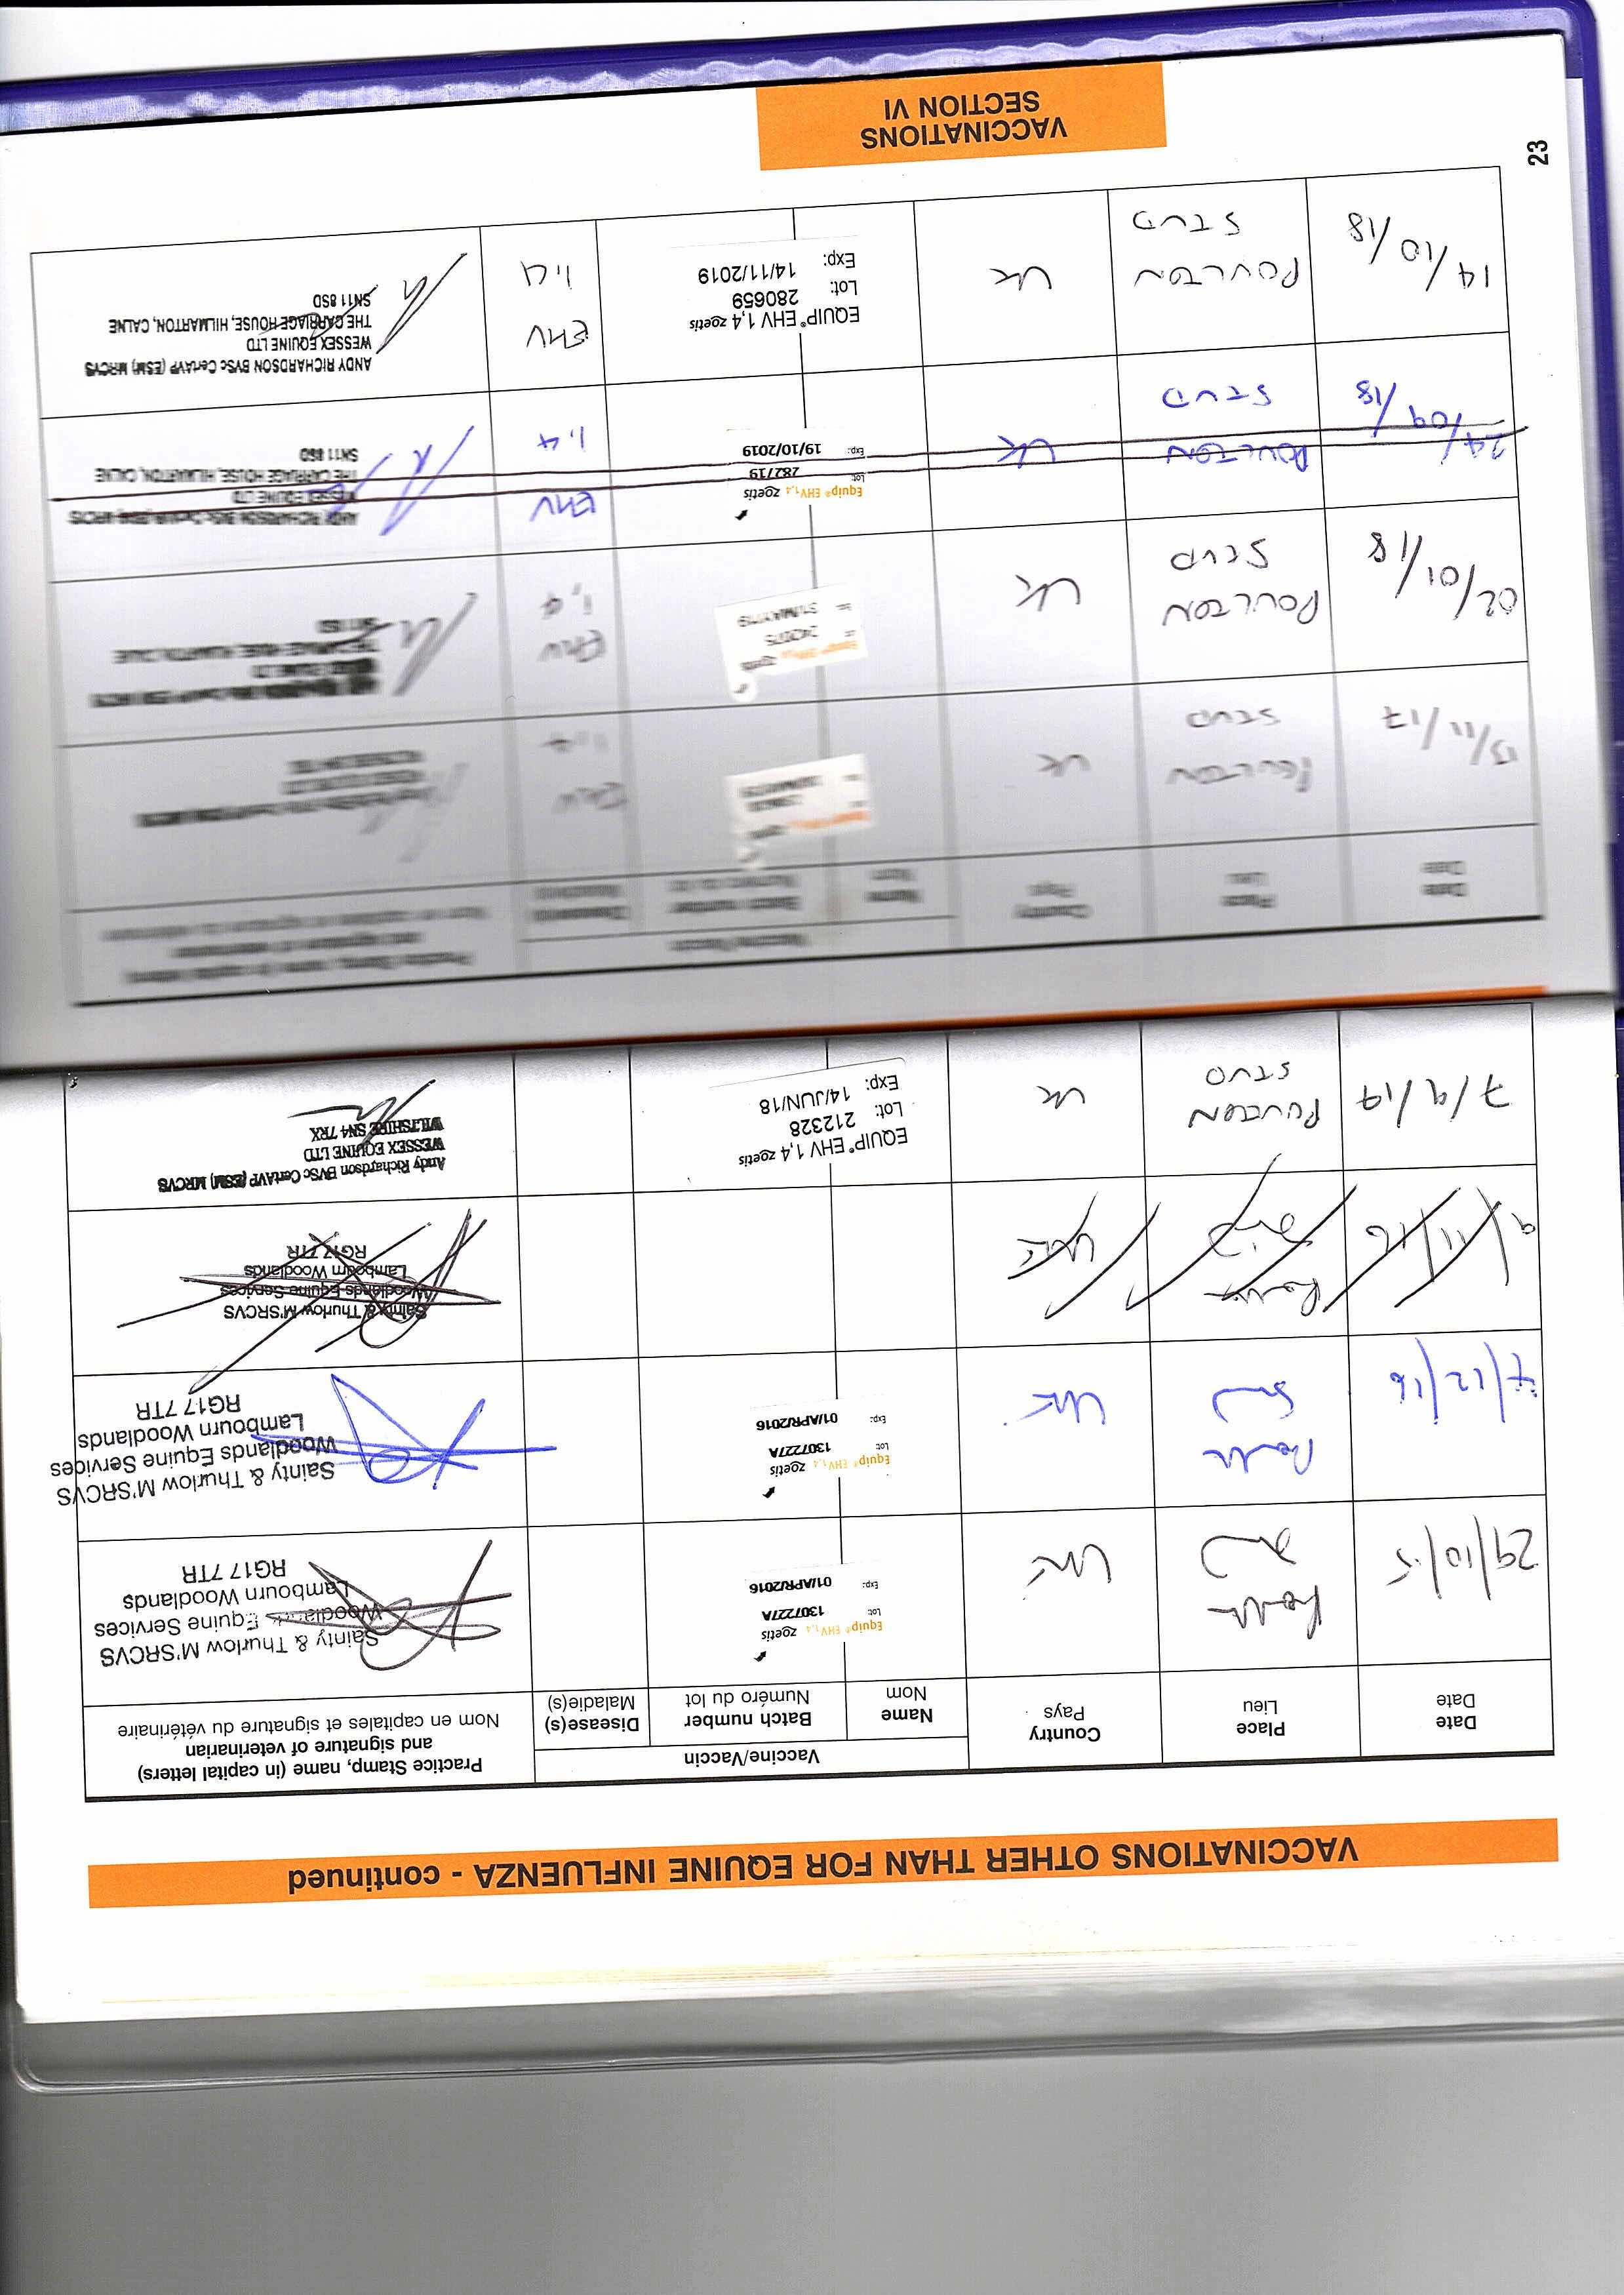 VACCINATIONS OTHER THAN FOR EQUINE INFLUENZA - continued
Date
Date
Place
Lieu
Country
Pays
Vaccine/Vaccin
Name
Nom
Batch number
Numéro du lot
Disease(s)
Maladie(s)
Practice Stamp, name (in capital letters)
and signature of veterinarian
Nom en capitales et signature du vétérinaire
29/10/15
UK
Equip® EHV1,4 zoetis
Lot: 1307227A
Exp: 01/APR/2016
Sainty & Thurlow M'SRCVS
Woodlands Equine Services
Lambourn Woodlands
RG17 7TR
7/12/16
UK
Equip® EHV1,4 zoetis
Lot: 1307227A
Exp: 01/APR/2016
Sainty & Thurlow M'SRCVS
Woodlands Equine Services
Lambourn Woodlands
RG17 7TR
9/11/16
UK
Sainty & Thurlow M'SRCVS
Woodlands Equine Services
Lambourn Woodlands
RG17 7TR
7/9/17
POULTON
STUD
UK
EQUIP® EHV 1,4 zoetis
Lot: 212328
Exp: 14/JUN/18
Andy Richardson BVSc CertAVP (ESM) MRCVS
WESSEX EQUINE LTD
WILTSHIRE SN4 7RX
Date
Date
Place
Lieu
Country
Pays
Vaccine/Vaccin
Name
Nom
Batch number
Numéro du lot
Disease(s)
Maladie(s)
Practice Stamp, name (in capital letters)
and signature of veterinarian
Nom en capitales et signature du vétérinaire
13/11/17
POULTON
STUD
UK
EHV
1,4
02/01/18
POULTON
STUD
UK
EHV
1,4
24/09/18
POULTON
STUD
UK
Equip® EHV1,4 zoetis
Lot: 282719
Exp: 19/10/2019
EHV
1,4
ANDY RICHARDSON BVSc CertAVP (ESM) MRCVS
WESSEX EQUINE LTD
THE CARRIAGE HOUSE, HILMARTON, CALNE
SN11 8SD
14/10/18
POULTON
STUD
UK
EQUIP® EHV 1,4 zoetis
Lot: 280659
Exp: 14/11/2019
EHV
1,4
ANDY RICHARDSON BVSc CertAVP (ESM) MRCVS
WESSEX EQUINE LTD
THE CARRIAGE HOUSE, HILMARTON, CALNE
SN11 8SD
VACCINATIONS
SECTION VI
23